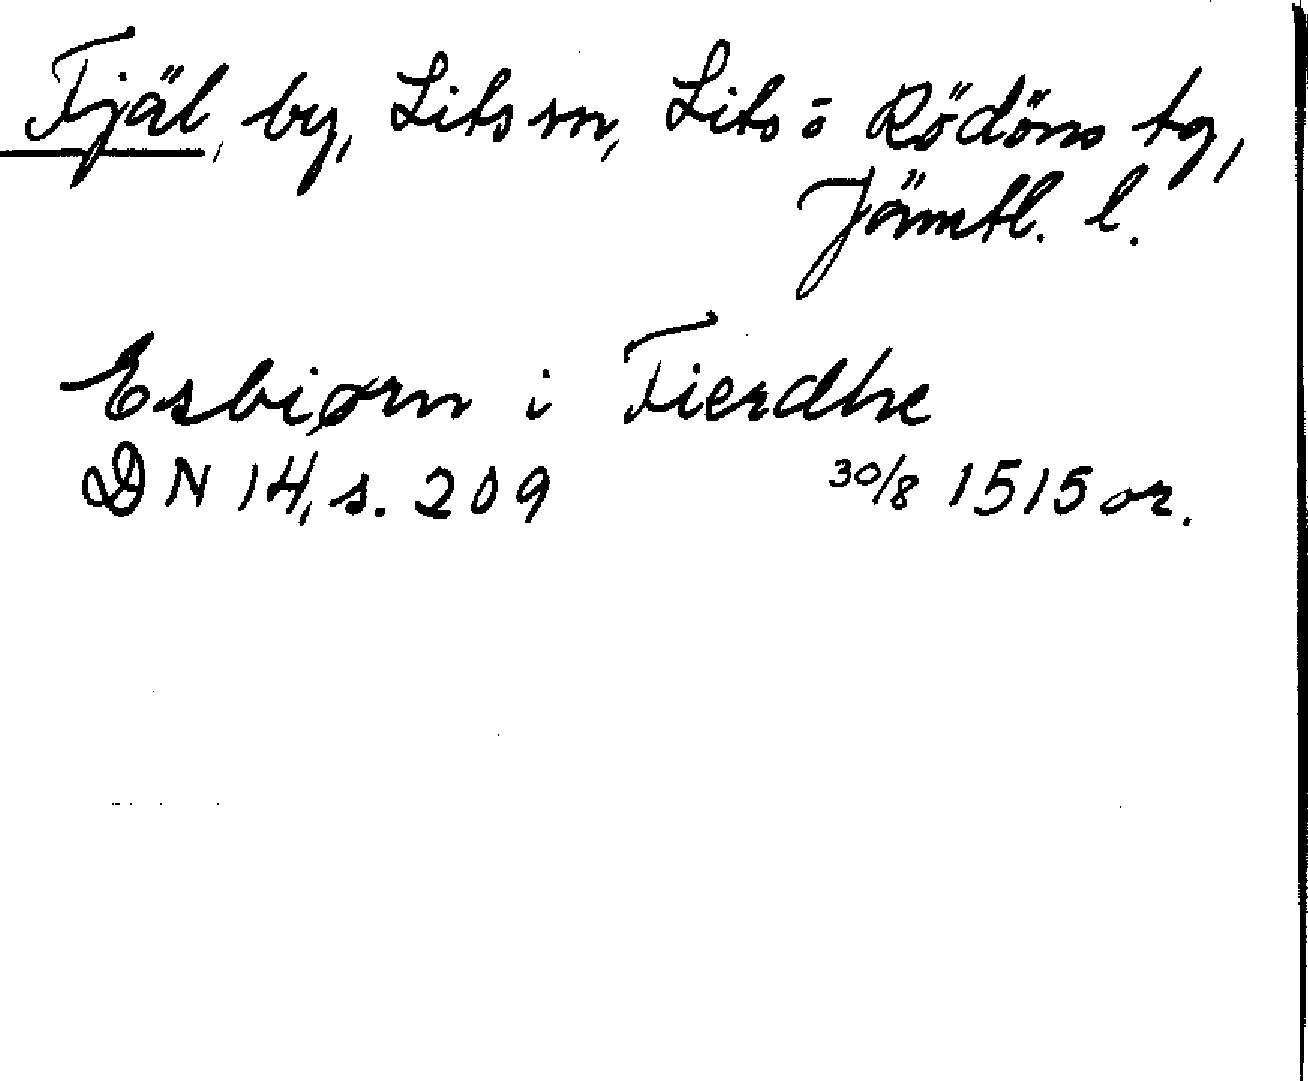 Fjäl, by, Lits sn, Lits o Rödöns tg,
Jämtl. l.
Esbiørn i Fierdhe
DN 14, s. 209 30/8 1515 or.